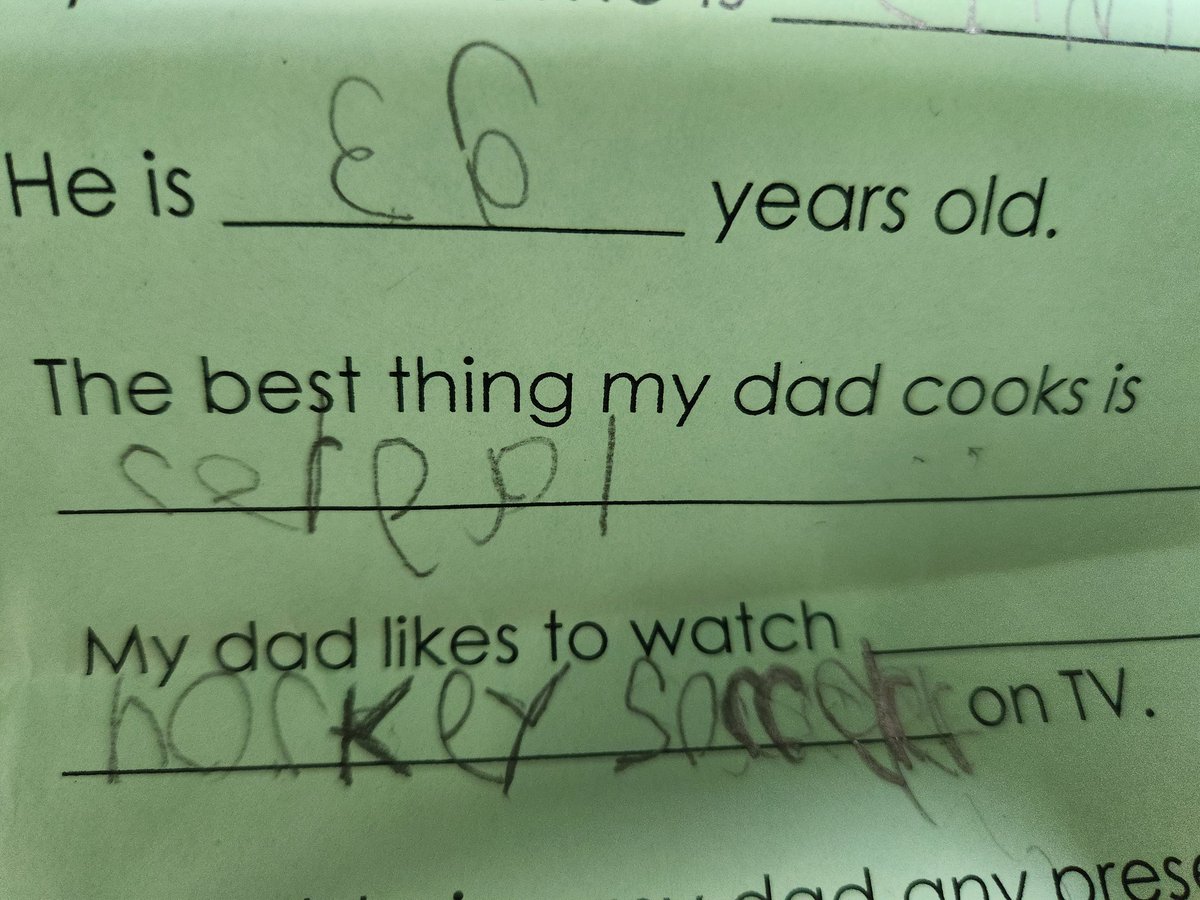 is
He is 36 years old.
The best thing my dad cooks is
cereal
My dad likes to watch
hockey soccer on TV.
dad any